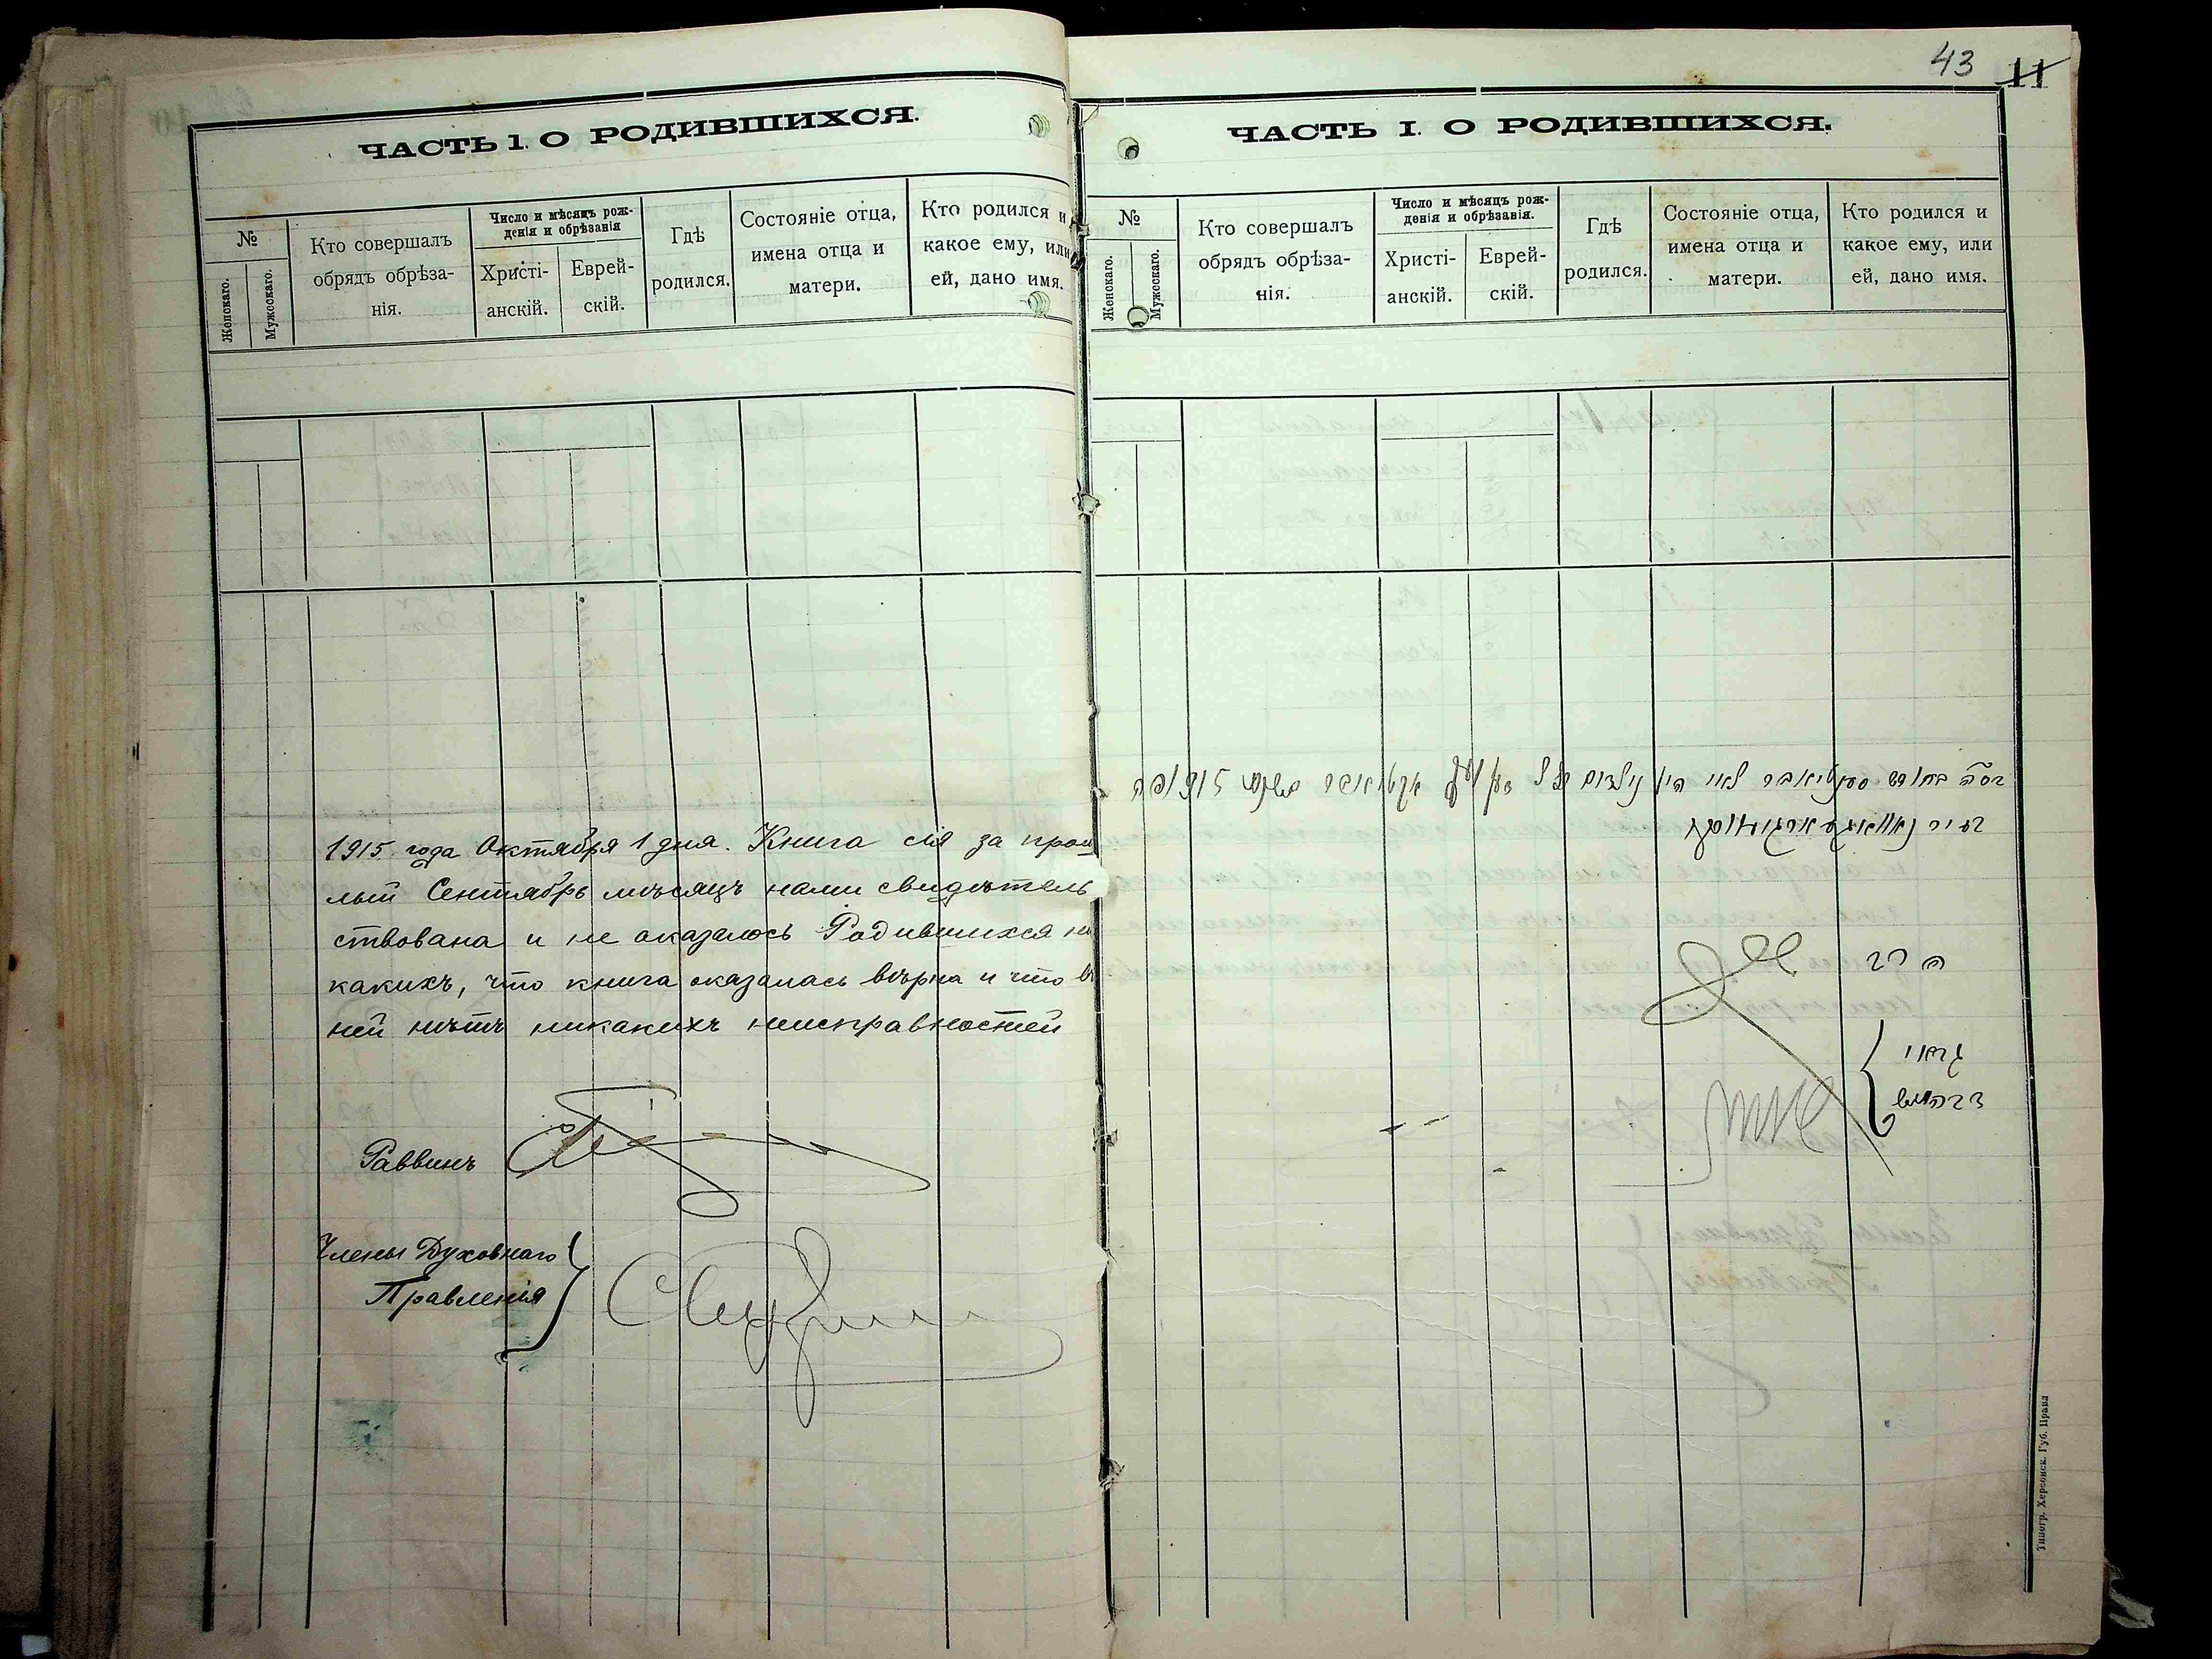 ЧАСТЬ 1. О РОДИВШИХСЯ.
№
Женскаго.
Мужескаго.
Кто совершалъ
обрядъ обрѣза-
нія.
Число и мѣсяцъ рож-
денія и обрѣзанія
Христі-
анскій.
Еврей-
скій.
Гдѣ
родился.
Состояніе отца,
имена отца и
матери.
Кто родился и
какое ему, или
ей, дано имя.
1915 года Октября 1 дня. Книга сія за прош
лый Сентябрь мѣсяцъ нами свидѣтель
ствована и не оказалось Родившихся ни
какихъ, что книга оказалась вѣрна и что въ
ней нѣтъ никакихъ неисправностей
Раввинъ
Члены Духовнаго
Правленія
43 11
ЧАСТЬ I. О РОДИВШИХСЯ.
№
Женскаго.
Мужескаго.
Кто совершалъ
обрядъ обрѣза-
нія.
Число и мѣсяцъ рож-
денія и обрѣзанія.
Христі-
анскій.
Еврей-
скій.
Гдѣ
родился.
Состояніе отца,
имена отца и
матери.
Кто родился и
какое ему, или
ей, дано имя.
1915
הרב
גבאי
Типогр. Херсонск. Губ. Правл